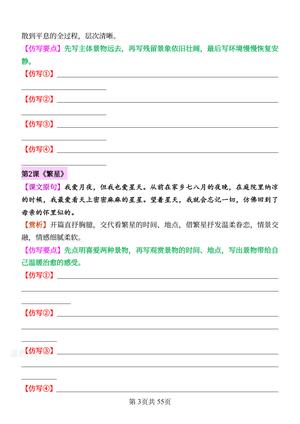 散到平息的全过程，层次清晰。
【仿写要点】先写主体景物远去，再写残留景象依旧壮阔，最后写环境慢慢恢复安
静。
【仿写①】
【仿写②】
【仿写③】
【仿写④】
第2课《繁星》
【课文原句】我爱月夜，但我也爱星天。从前在家乡七八月的夜晚，在庭院里纳凉
的时候，我最爱看天上密密麻麻的星星。望着星天，我就会忘记一切，仿佛回到了
母亲的怀里似的。
【赏析】开篇直抒胸臆，交代看繁星的时间、地点，借繁星抒发温柔眷恋，情景交
融，情感细腻柔软。
【仿写要点】先点明喜爱两种景物，再写观赏景物的时间、地点，写出景物带给自
己温暖治愈的感受。
【仿写①】
【仿写②】
【仿写③】
【仿写④】
第 3页共 55页